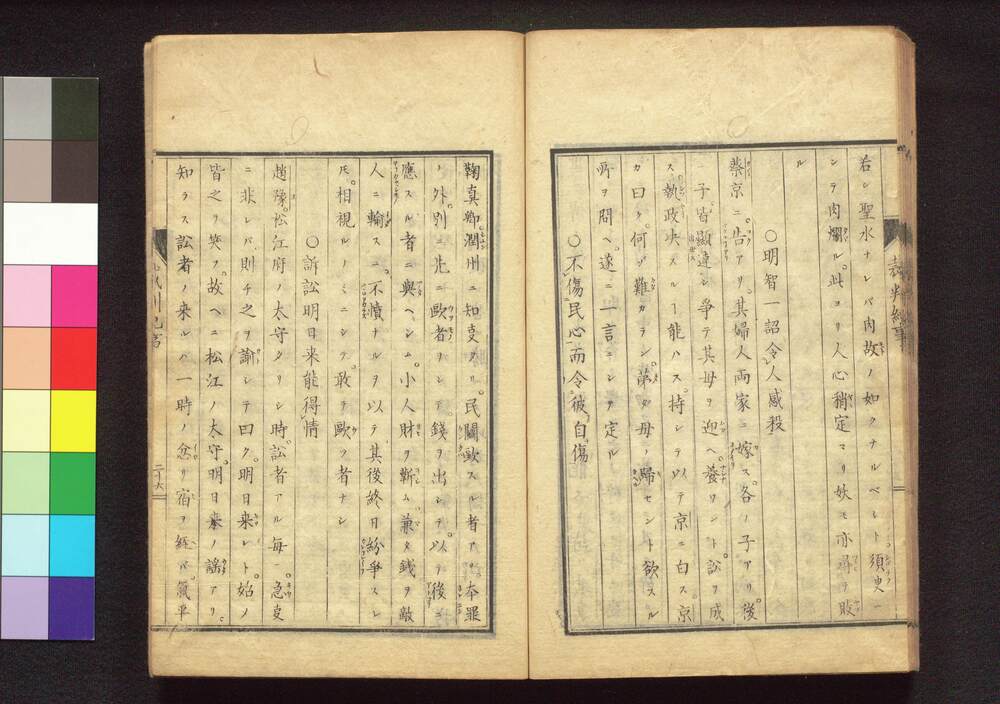 若シ聖水ナレバ肉故ノ如クナルベシト。須臾ニ
シテ肉爛ル。此ヨリ人心稍定マリ妖モ亦尋テ敗
ル
○明智一詔令人感殺
蔡京ニ。告アリ。其婦人両家ニ嫁ス。各ノ子アリ。後
二子。皆顕達シ争テ其母ヲ迎ヘ。養ワント。訟ヲ成
ス。執政决スルヿ能ハス。持シテ以テ京ニ白ス。京
カ曰ク。何ゾ難カラン。第タ母ノ歸セント欲スル
所ヲ問ヘ。遂ニ一言ニシテ定ル
○不傷民心而令彼自傷
鞠真卿。潤州ニ知支タリ。民鬪毆スル者アレバ。本罪
ノ外別ニ先ニ毆者ヲシテ。錢ヲ出シテ。以テ後ニ
應スル者ニ與ヘシム。小人財ヲ靳ム兼タ銭ヲ敵
人ニ輸スニ。不憤ナルヲ以テ其後終日紛爭スレ
𪜈。相視ルノミニシテ。敢テ毆ヲ者ナシ
○訴訟明日来能得情
趙豫。松江府ノ太守タリシ時。訟者アル毎ニ。急支
ニ非レバ則チ之ヲ諭シテ曰ク。明日来レト。始メ
皆之ヲ笑フ。故ヘニ松江ノ太守。明日来ノ謡アリ。
知ラス訟者ノ来ルハ一時ノ忿リ。宿ヲ經バ。氣平
二十六